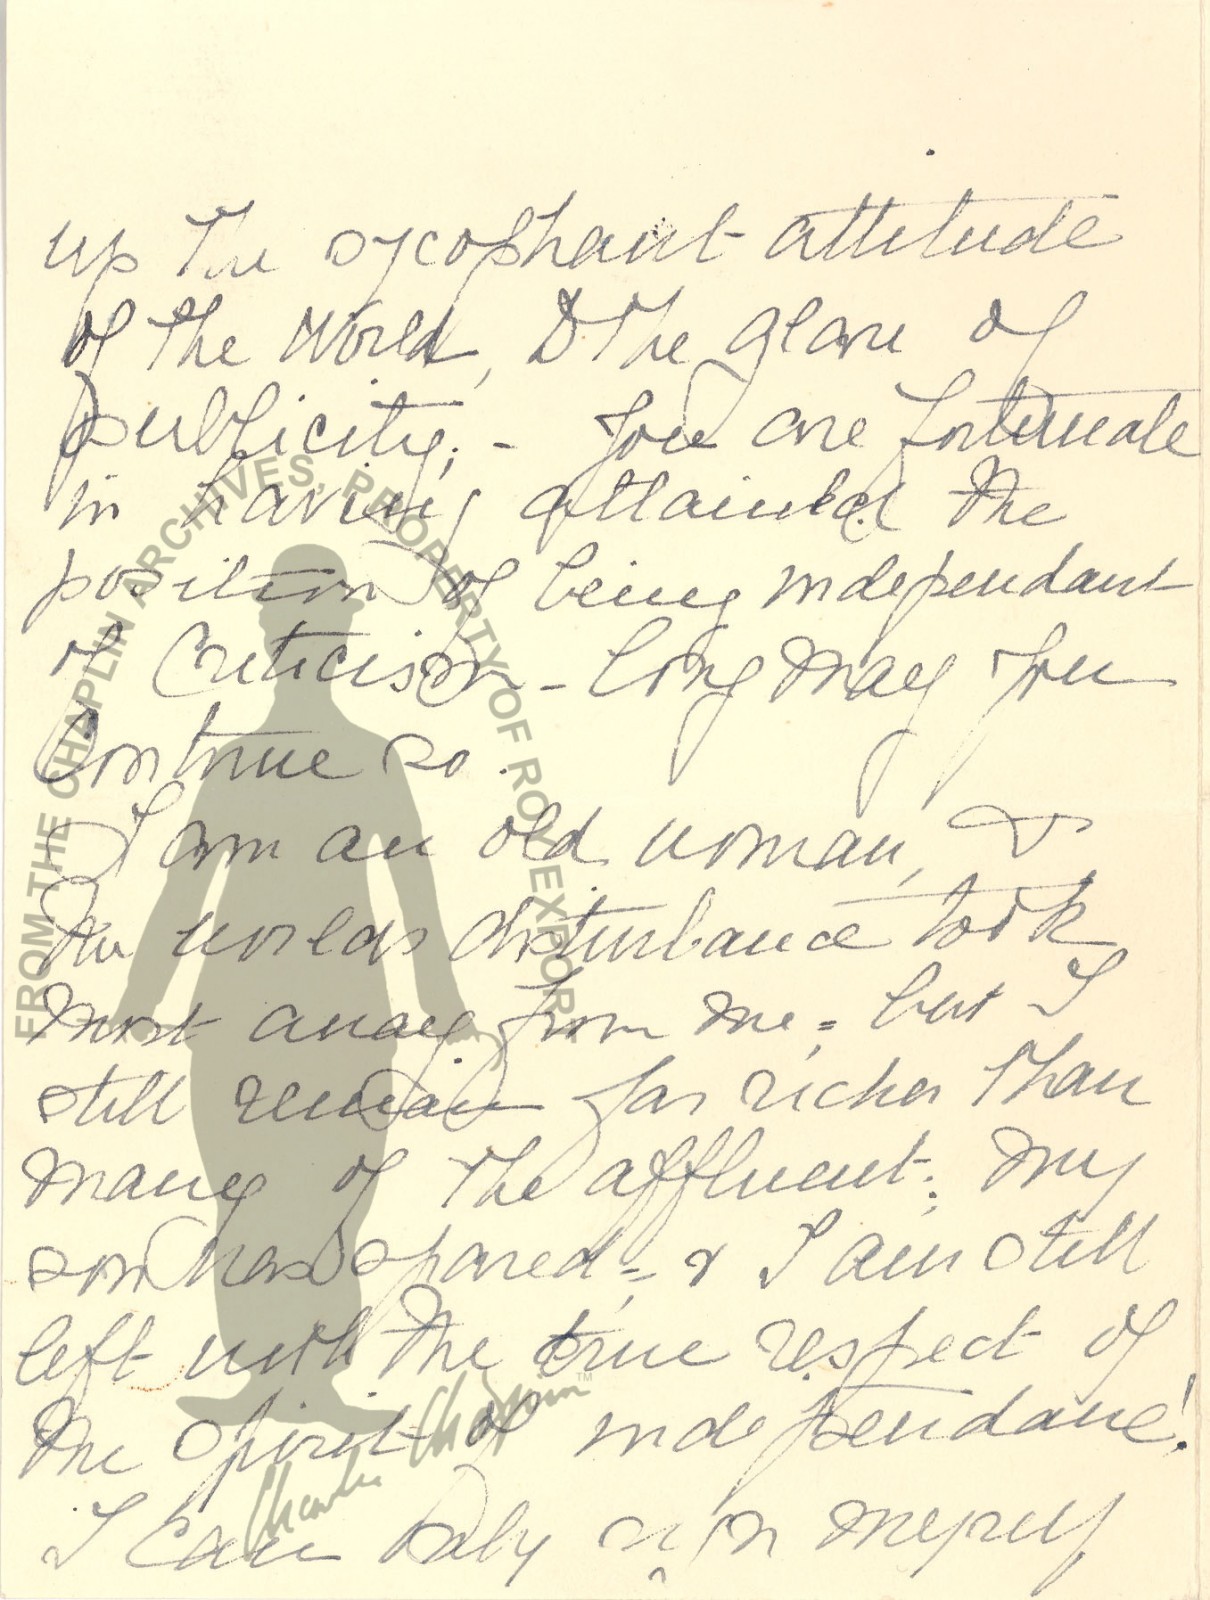 up the sycophant attitude
of the world, & the glare of
publicity; - You are fortunate
in having attained the
position of being independant
of criticism - long may you
continue so.
I am an old woman, &
the worlds disturbance took
most away from me; = but I
still remain far richer than
many of the affluent; my
son has spared, = & I am still
left with the true respect of
the spirit of independance!
I can only sign myself
FROM THE CHAPLIN ARCHIVES, PROPERTY OF ROY EXPORT
Charlie Chaplin™